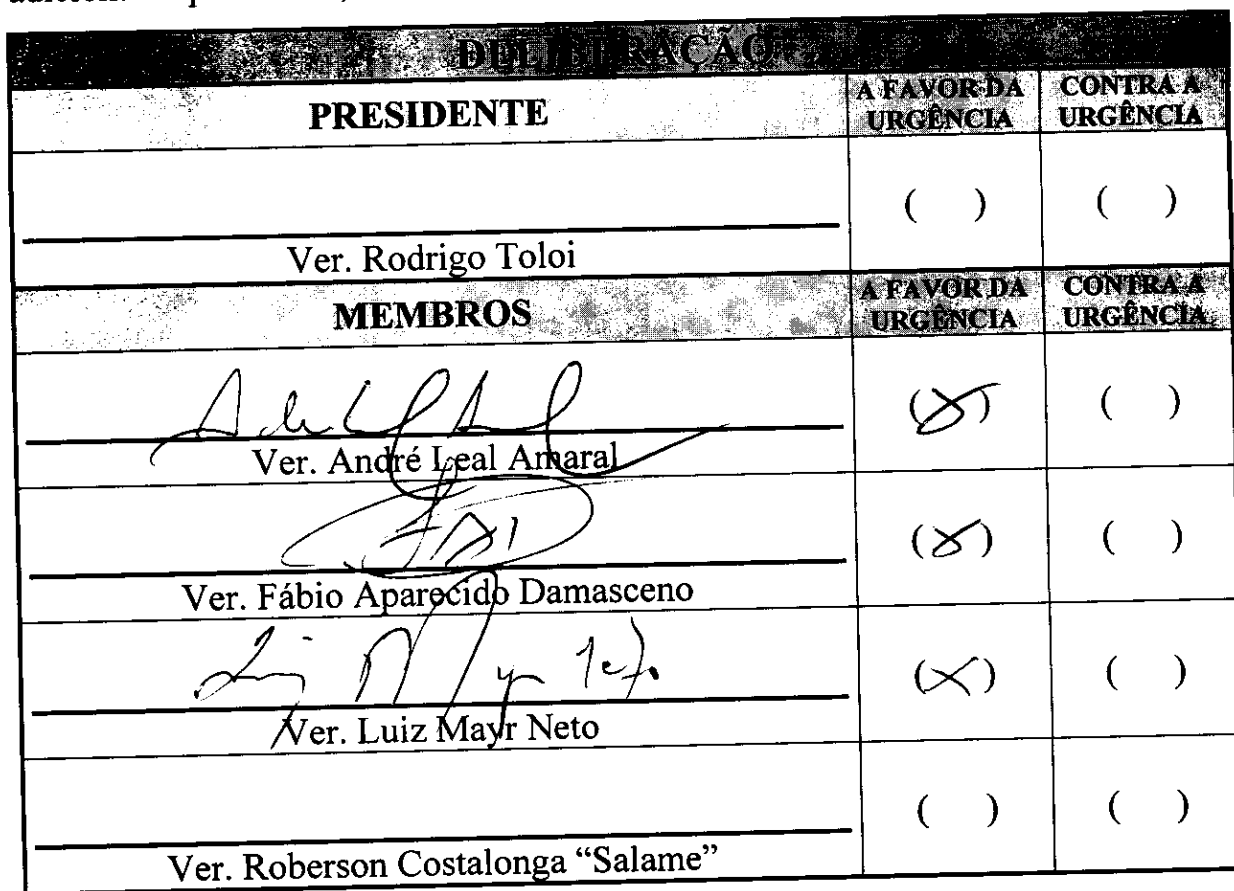 DELIBERAÇÃO
PRESIDENTE
A FAVOR DA URGÊNCIA
CONTRA A URGÊNCIA
( ) ( )
Ver. Rodrigo Toloi
MEMBROS
A FAVOR DA URGÊNCIA
CONTRA A URGÊNCIA
(X) ( )
Ver. André Leal Amaral
(X) ( )
Ver. Fábio Aparecido Damasceno
(X) ( )
Ver. Luiz Mayr Neto
( ) ( )
Ver. Roberson Costalonga “Salame”